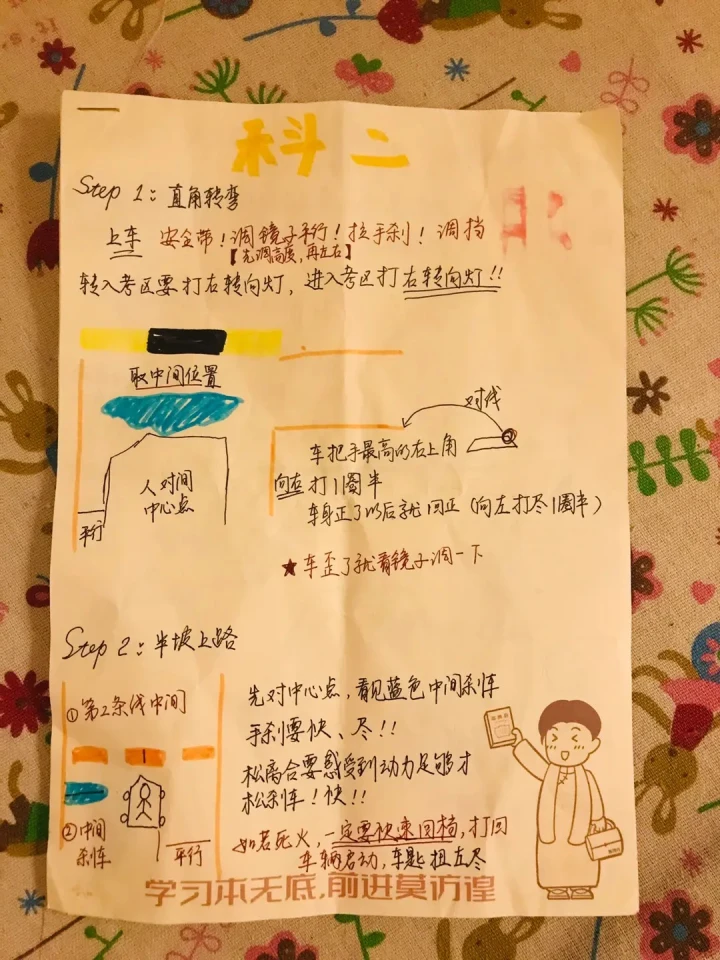 科二
Step 1：直角转弯
上车 安全带！调镜子平行！拉手刹！调挡
【先调高度，再左右】
转入考区要打右转向灯，进入考区打右转向灯!!
取中间位置
对线
车把手最高的右上角
人对间
中心点
向左打1圈半
车身正了以后就回正（向左打尽1圈半）
平行
★车歪了就看镜子调一下
Step 2：半坡上路
①第2条线中间
先对中心点，看见蓝色中间刹车
手刹要快、尽!!
松离合要感受到动力足够才
松刹车！快!!
②中间
刹车
平行
如若死火，一定要快速回档，打回
车辆启动，车匙扭左尽
学习本无底，前进莫彷徨